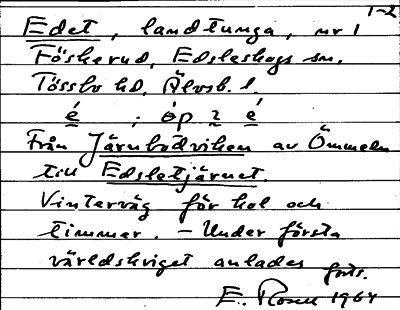 1-2
Edet, landtunga, nr 1
Föskerud, Edsleskogs sn.
Tössbo hd, Älvsb. l.
é ; óp 2 é
Från Järnbodviken av Ömmeln
till Edsletjärnet.
Vinterväg för kol och
timmer. – Under första
världskriget anlades
forts.
E. Rosen 1964